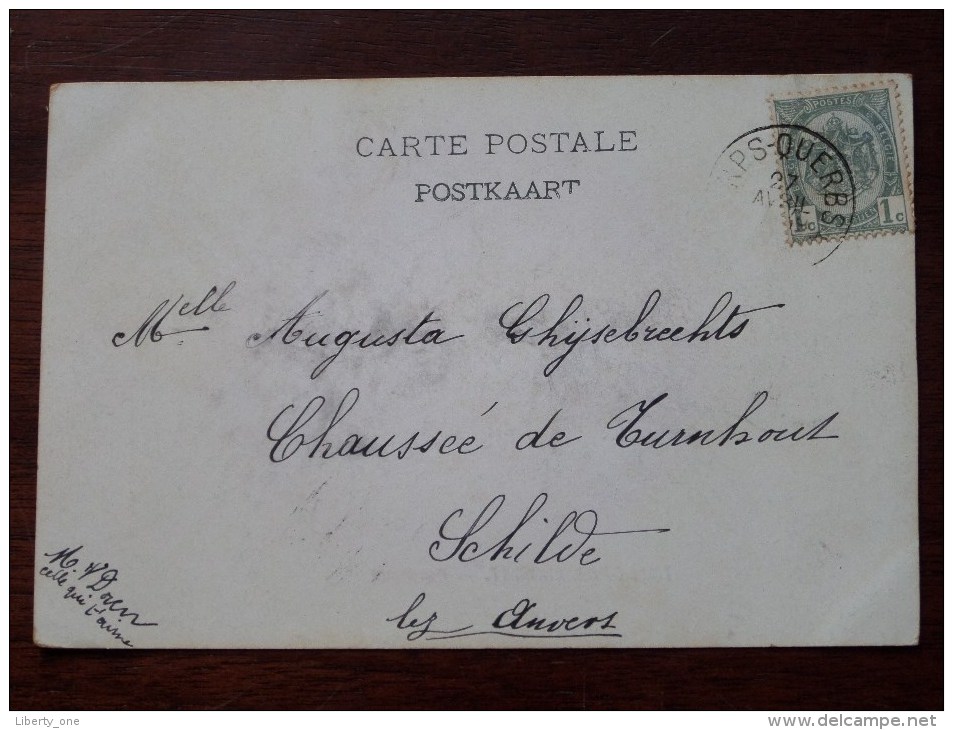 CARTE POSTALE
POSTKAART
POSTES BELGIE
1c 1c
RPS-QUERBS
Melle Augusta Ghijsebrechts
Chaussée de Turnhout
Schilde
lez Anvers
celle qui t'aime
Liberty_one
www.delcampe.net